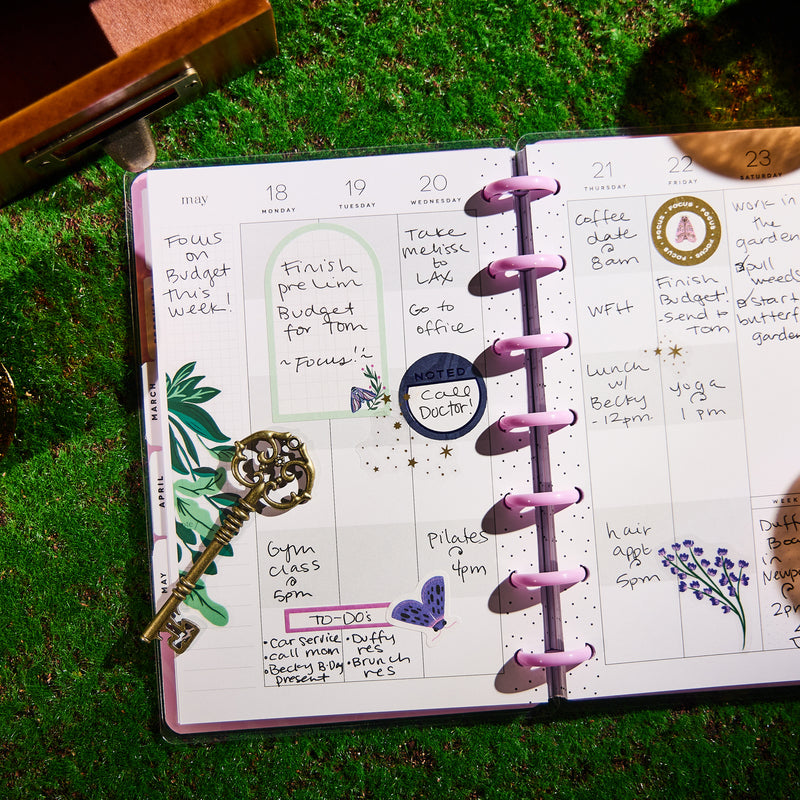 may
18
MONDAY
19
TUESDAY
20
WEDNESDAY
Focus
on
Budget
this
week!
Finish
prelim
Budget
for Tom
~Focus!~
Take
melissa
to
LAX
Go to
office
NOTED
Call
Doctor!
Gym
class
@
5pm
Pilates
@
4pm
TO-DO's
•Car service
•call mom
•Becky B-Day
present
•Duffy
res
•Brunch
res
MARCH
APRIL
MAY
21
THURSDAY
22
FRIDAY
23
SATURDAY
coffee
date
@
8am
WFH
Lunch
w/
Becky
-12pm
hair
appt
@
5pm
FOCUS • FOCUS • FOCUS • FOCUS •
Finish
Budget!
-send to
Tom
yoga
@
1pm
work in
the
garden
pull
weeds
start
butterf
garden
WEEK
Duff
Boa
in
Newpo
@
2p